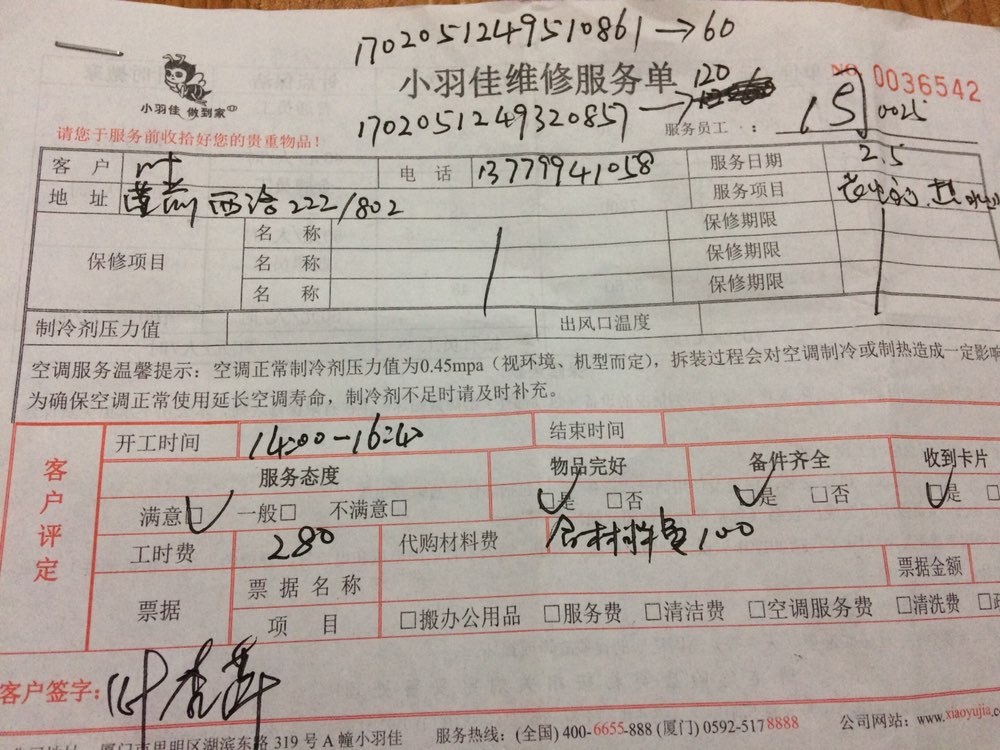 1702051249510861→60
小羽佳维修服务单 120
NO 0036542
小羽佳 做到家
1702051249320857→
服务员工 : 0025
请您于服务前收拾好您的贵重物品!
客 户 叶 电 话 13779941058 服务日期 2.5
地 址 莲前西洽222/802 服务项目
保修项目 名 称 保修期限
名 称 保修期限
名 称 保修期限
制冷剂压力值 出风口温度
空调服务温馨提示:空调正常制冷剂压力值为0.45mpa(视环境、机型而定),拆装过程会对空调制冷或制热造成一定影响
为确保空调正常使用延长空调寿命,制冷剂不足时请及时补充。
客户评定
开工时间 14:00-16:40 结束时间
服务态度 物品完好 备件齐全 收到卡片
满意□ 一般□ 不满意□ □是 □否 □是 □否 □是 □
工时费 280 代购材料费 含材料费100
票据 票据名称 票据金额
项 目 □搬办公用品 □服务费 □清洁费 □空调服务费 □清洗费
客户签字: 叶
厦门市思明区湖滨东路 319 号 A 幢小羽佳 服务热线:(全国) 400-6655-888 (厦门) 0592-5178888 公司网站:www.xiaoyujia.co